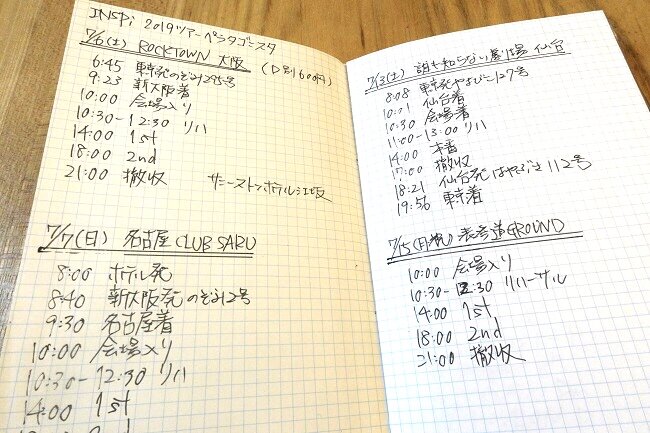 INSPi 2019ツアーペラタゴニスタ
7/6(土) ROCKTOWN 大阪 (D別600円)
6:45 東京発のぞみ295号
9:23 新大阪着
10:00 会場入り
10:30-12:30 リハ
14:00 1st
18:00 2nd
21:00 撤収 サニーストンホテル江坂
7/7(日) 名古屋 CLUB SARU
8:00 ホテル発
8:40 新大阪発のぞみ2号
9:30 名古屋着
10:00 会場入り
10:30-12:30 リハ
14:00 1st
18:00 2nd
7/13(土) 誰も知らない劇場 仙台
8:08 東京発やまびこ127号
10:01 仙台着
10:30 会場着
11:00-13:00 リハ
14:00 本番
17:00 撤収
18:21 仙台発はやぶさ112号
19:56 東京着
7/15(月祝) 表参道GROUND
10:00 会場入り
10:30-12:30 リハーサル
14:00 1st
18:00 2nd
21:00 撤収